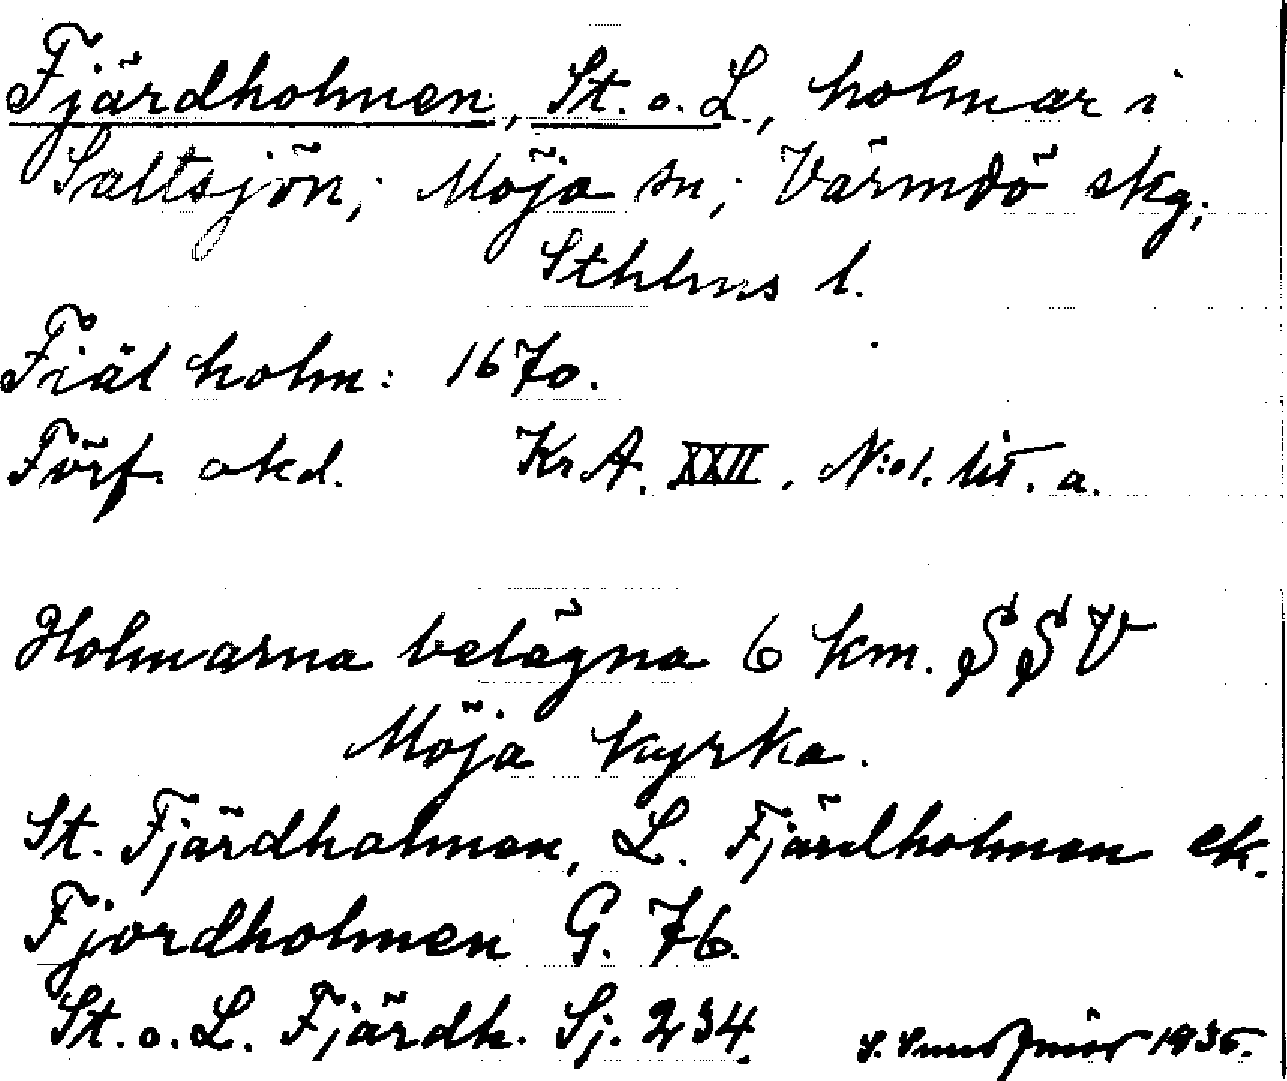 Fjärdholmen, St. o. L., holmar i
Saltsjön; Möja sn; Värmdö skg;
Sthlms l.
Fiäl holm: 1670.
Förf. okd. Kr A. XXII. N:o 1. lit. a.
Holmarna belägna 6 km. SSV
Möja kyrka.
St. Fjärdholmen, L. Fjärdholmen ek.
Fjordholmen G. 76.
St. o. L. Fjärdh. Sj. 234.
S. 1935.